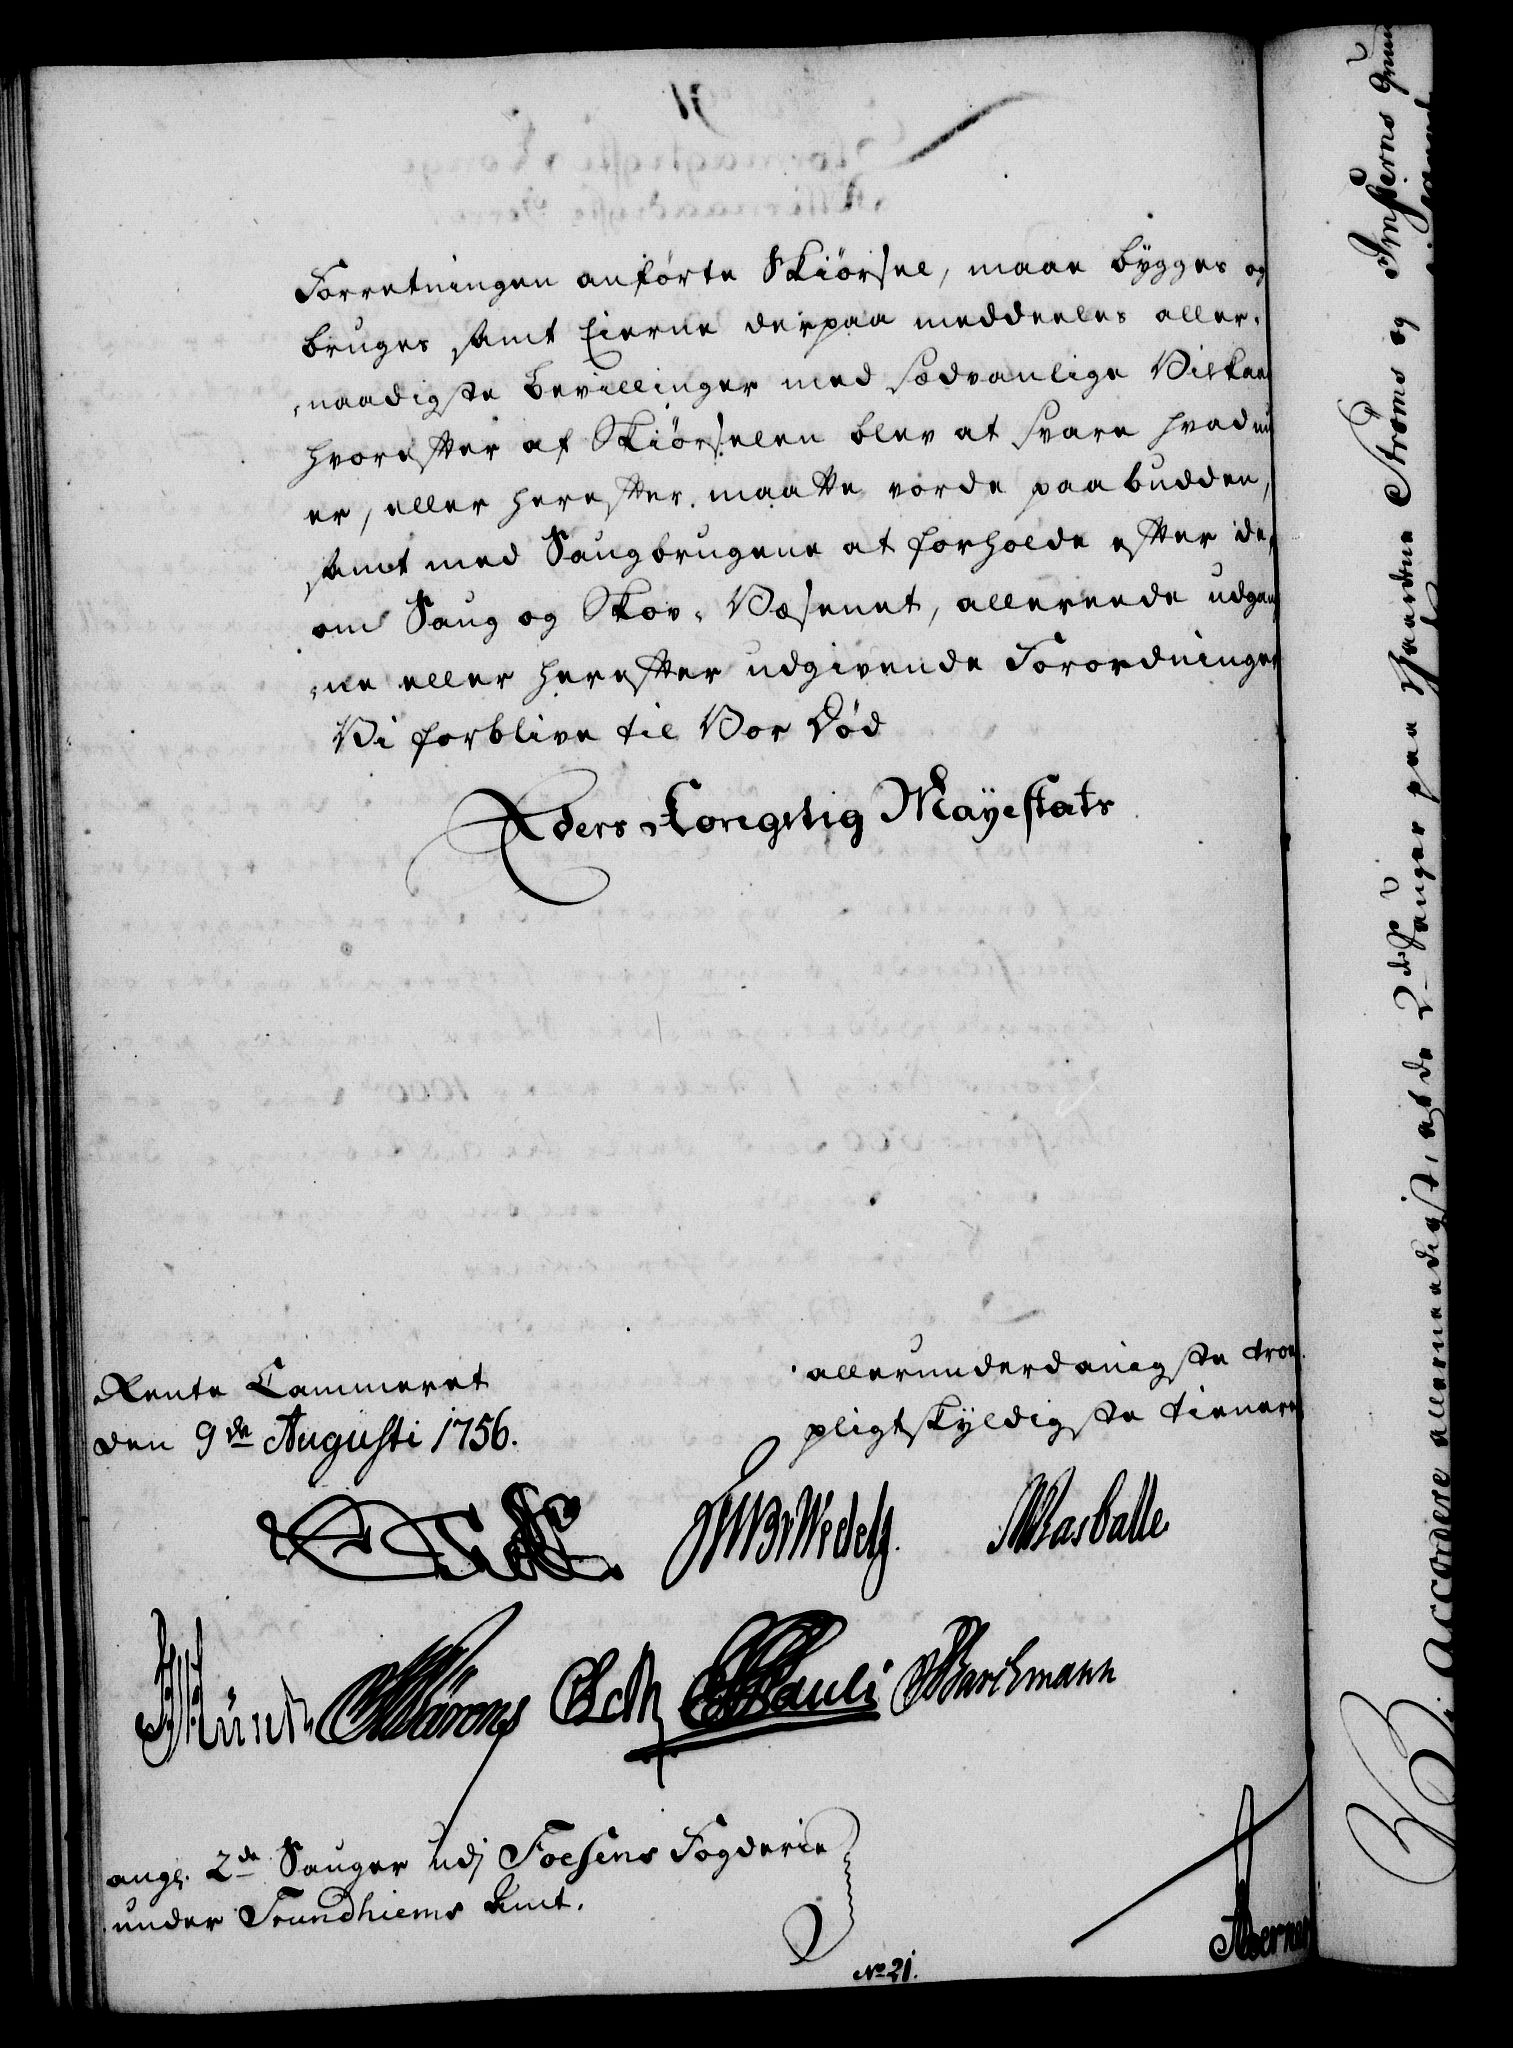 Forretningen anførte Skiørsel, maae bygges og
bruges samt Eierne derpaa meddeeles aller-
naadigste Bevillinger med sædvanlige Vilkaar
hvorefter af Skiørselen blev at svare hvad nu
er, eller herefter maatte vorde paabudden,
samt med Saugbrugene at forholde efter de
om Saug og Skov-Væsenet, allereede udgang
ne eller herefter udgivende Forordninger
Vi forblive til Vor Død
Eders Kongelig Mayestæts
Rente Cammeret
den 9de Augusti 1756.
allerunderdanigste troe
pligtskyldigste tienere
Wedel
Rasballe
Pauli
Barchmann
ang. 2de Sauger udj Foesens Fogderie
under Trundhiems Amt.
No 21.
Vi Accordere allernaadigst, at de 2de Sauger paa Gaardene Strøms og